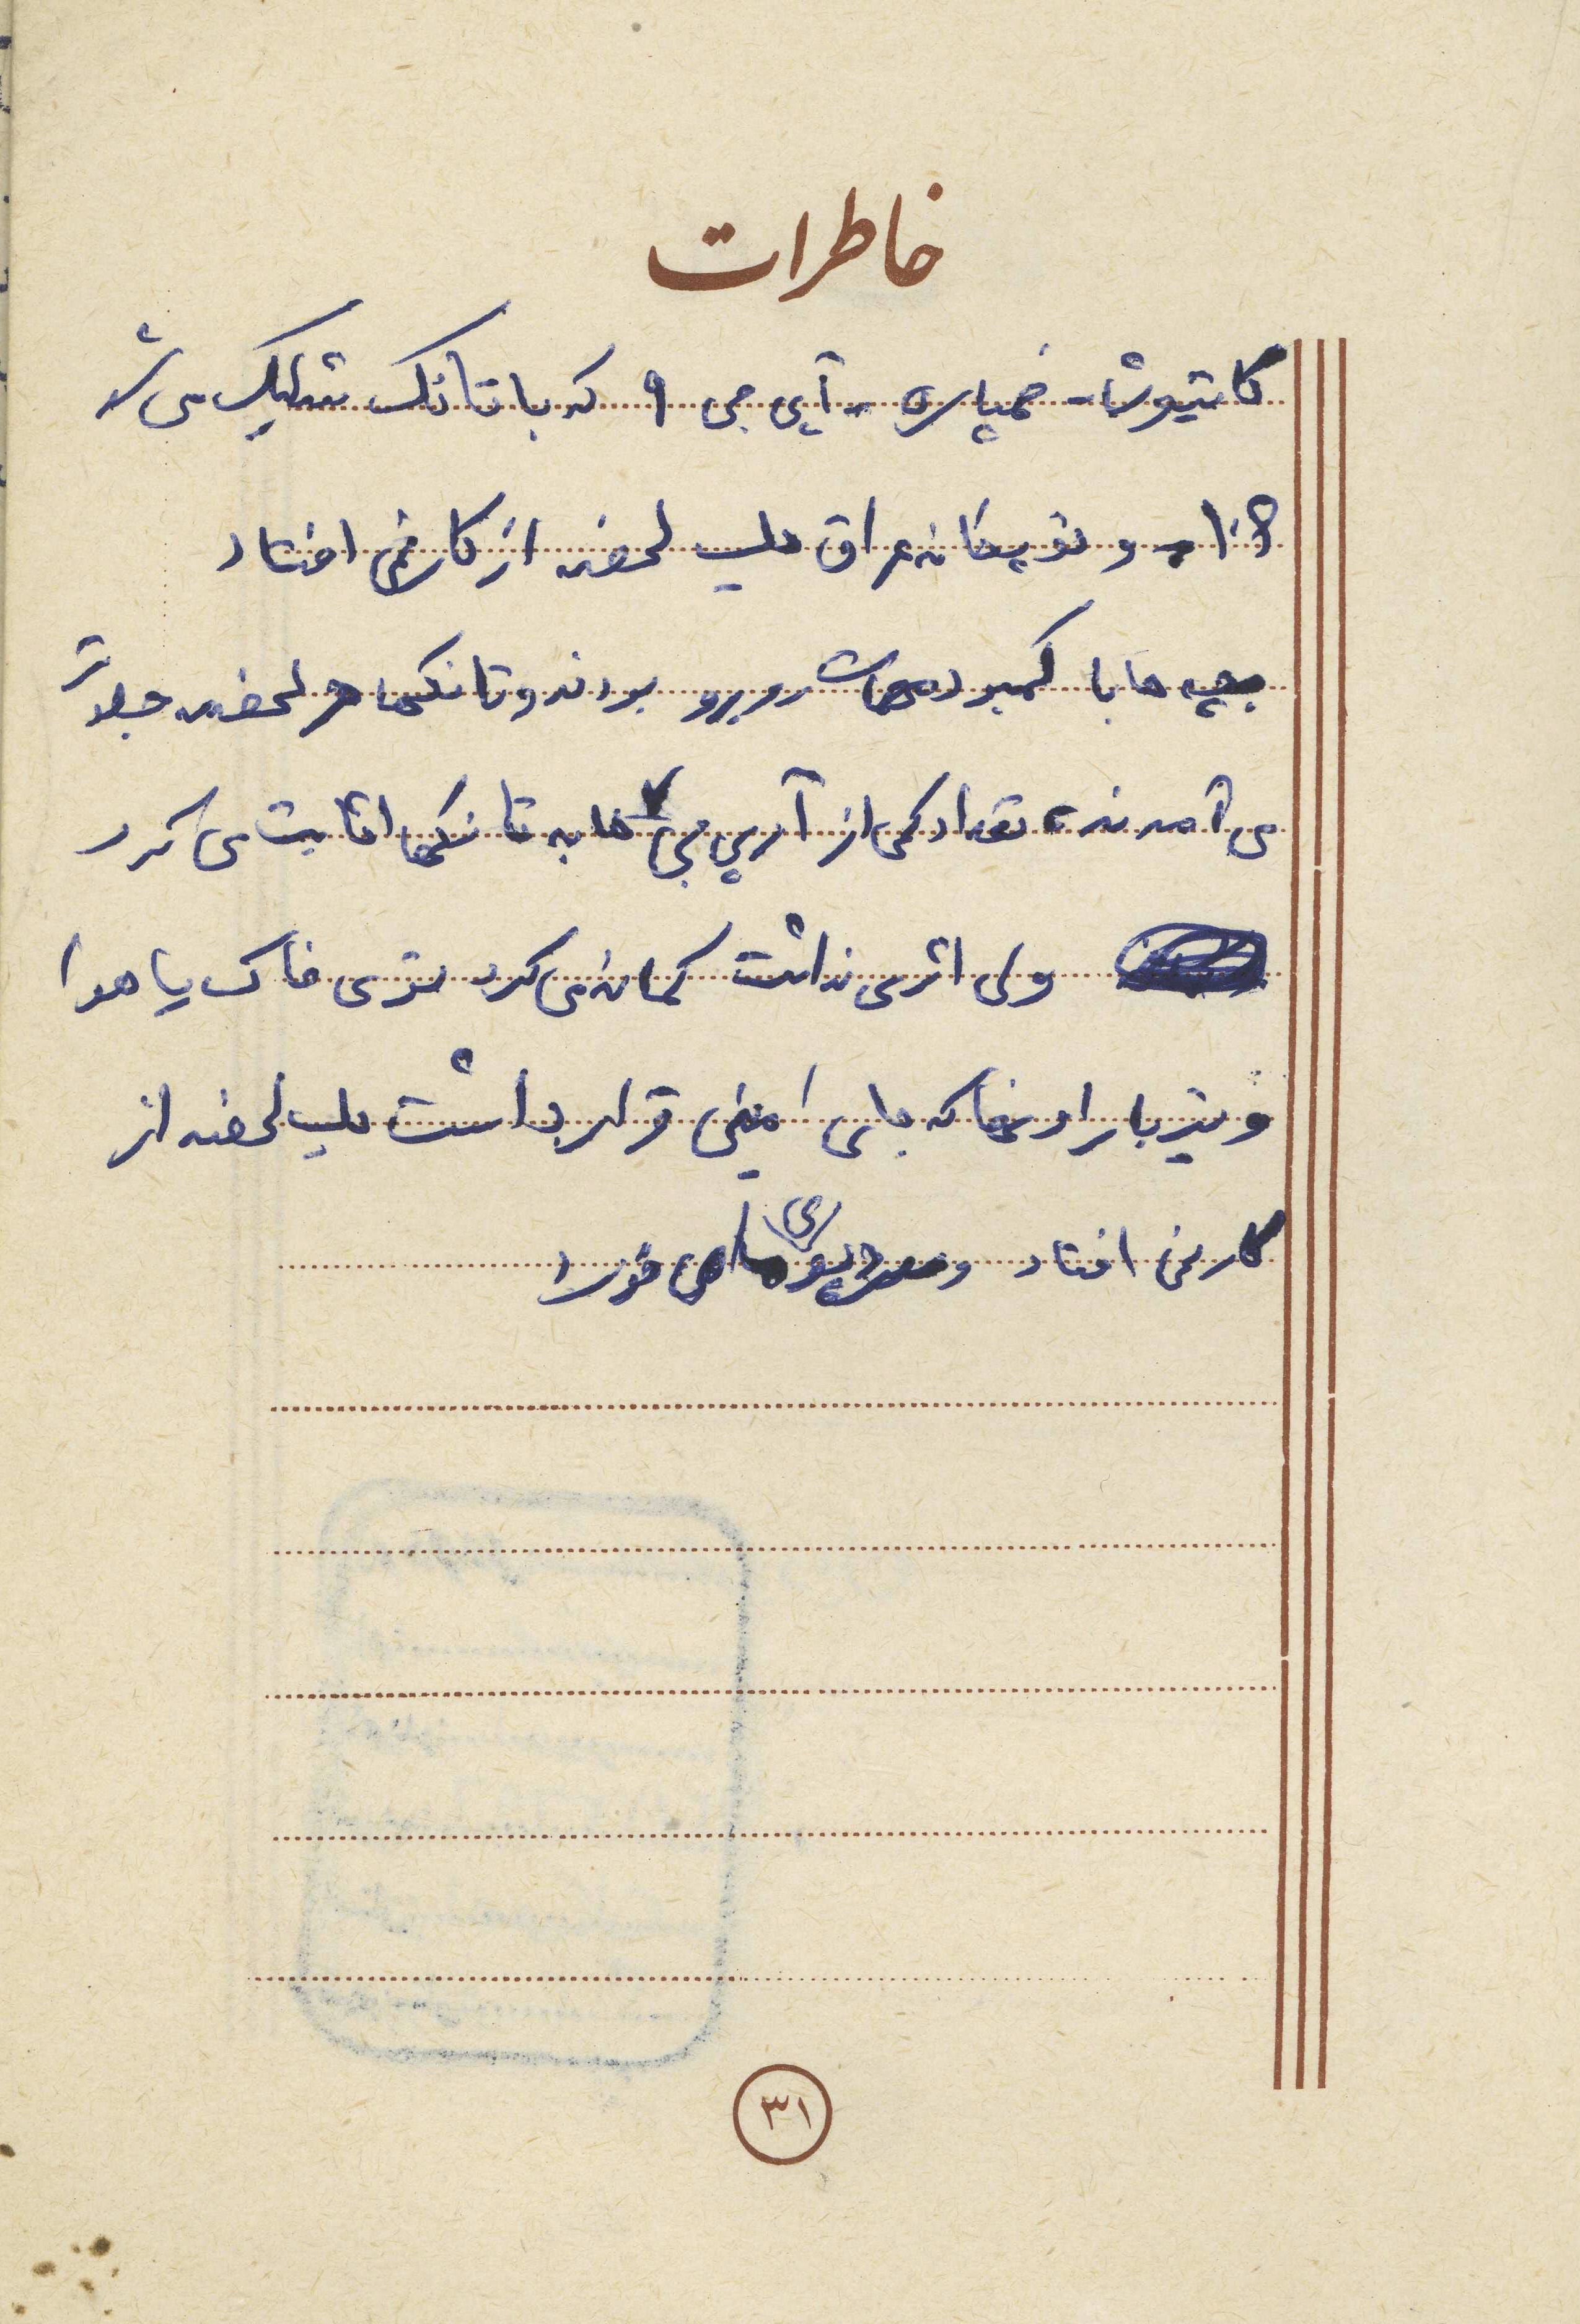 خاطرات
کاتیوشا - خمپاره - آرپی جی ۹ که با تانک شلیک می شد
۱۰۶ - و توپخانه عراق یک لحضه از کار نمی افتاد
بچه ها با کمبود مهمات روبرو بودند و تانکها هر لحضه جلوتر
می آمدند تعداد کمی از آرپی جی ۷ ها به تانکها اثابت می کرد
ولی اثری نداشت کمانه می کرد توی خاک یا هوا
و تیربار اونها که جای امنی قرار داشت یک لحضه از
کار نمی افتاد و توی ما می خورد
۳۱